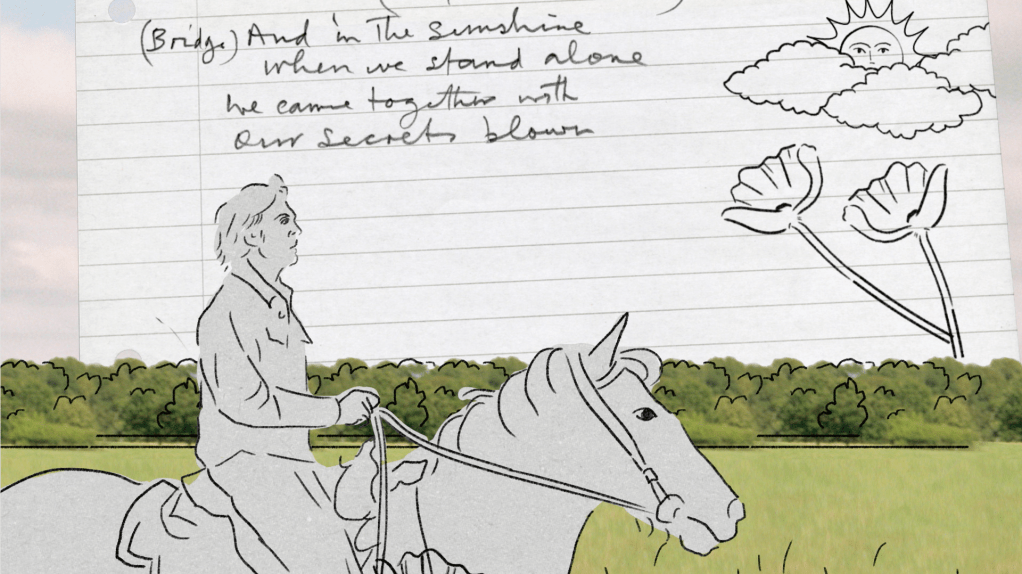 (Bridge) And in The Sunshine
when we stand alone
we came together with
Our Secrets blown